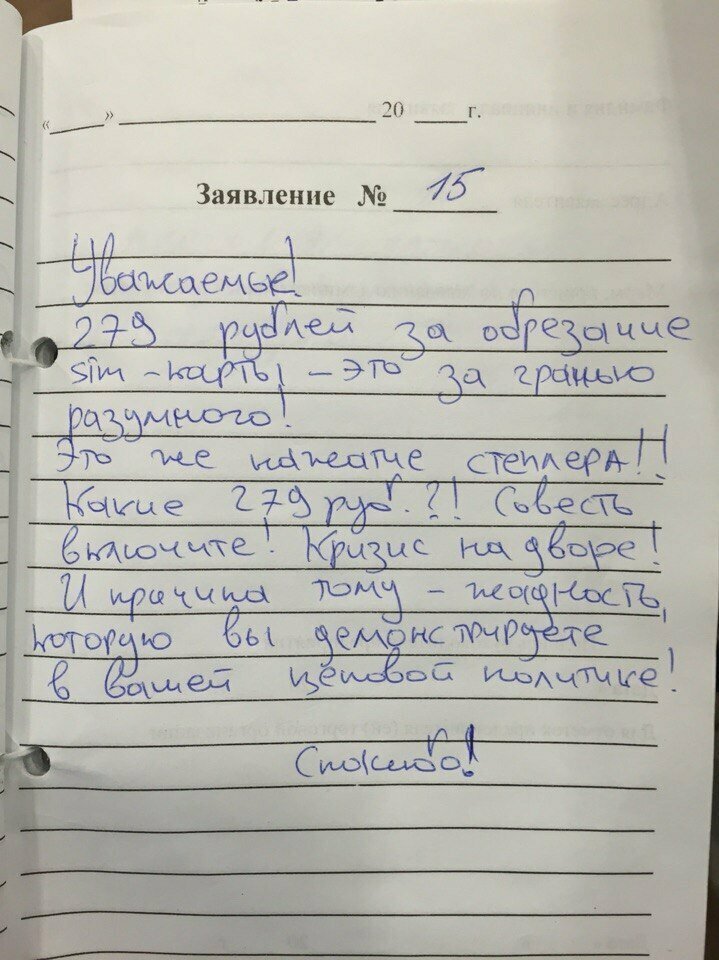 «____» ____________________ 20 ____г.
Заявление № 15
Уважаемые!
279 рублей за обрезание
sim-карты – это за гранью
разумного!
Это же нажатие степлера!!
Какие 279 руб.?! Совесть
включите! Кризис на дворе!
И причина тому – жадность,
которую вы демонстрируете
в вашей ценовой политике!
Спасибо!